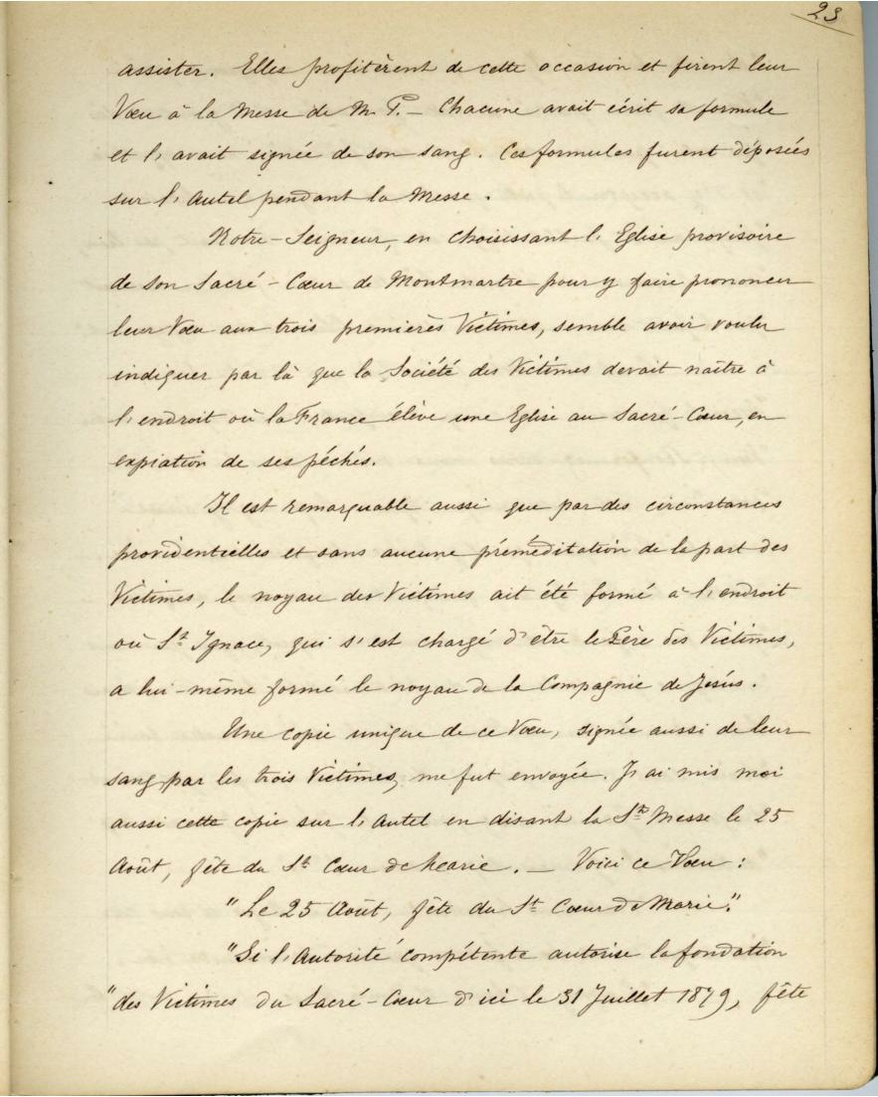 23
assister. Elles profitèrent de cette occasion et firent leur
Vœu à la Messe de M. P. — Chacune avait écrit sa formule
et l'avait signée de son sang. Ces formules furent déposées
sur l'Autel pendant la Messe.
Notre-Seigneur, en choisissant l'Eglise provisoire
de son Sacré-Cœur de Montmartre pour y faire prononcer
leur Vœu aux trois premières Victimes, semble avoir voulu
indiquer par là que la Société des Victimes devait naître à
l'endroit où la France élève une Eglise au Sacré-Cœur, en
expiation de ses péchés.
Il est remarquable aussi que par des circonstances
providentielles et sans aucune préméditation de la part des
Victimes, le noyau des Victimes ait été formé à l'endroit
où St Ignace, qui s'est chargé d'être le Père des Victimes,
a lui-même formé le noyau de la Compagnie de Jésus.
Une copie unique de ce Vœu, signée aussi de leur
sang par les trois Victimes, me fut envoyée. J'ai mis moi
aussi cette copie sur l'Autel en disant la Ste Messe le 25
Août, fête du St Cœur de Marie. — Voici ce Vœu :
"Le 25 Août, fête du St Cœur de Marie."
"Si l'Autorité compétente autorise la fondation
"des Victimes du Sacré-Cœur d'ici le 31 Juillet 1879, fête